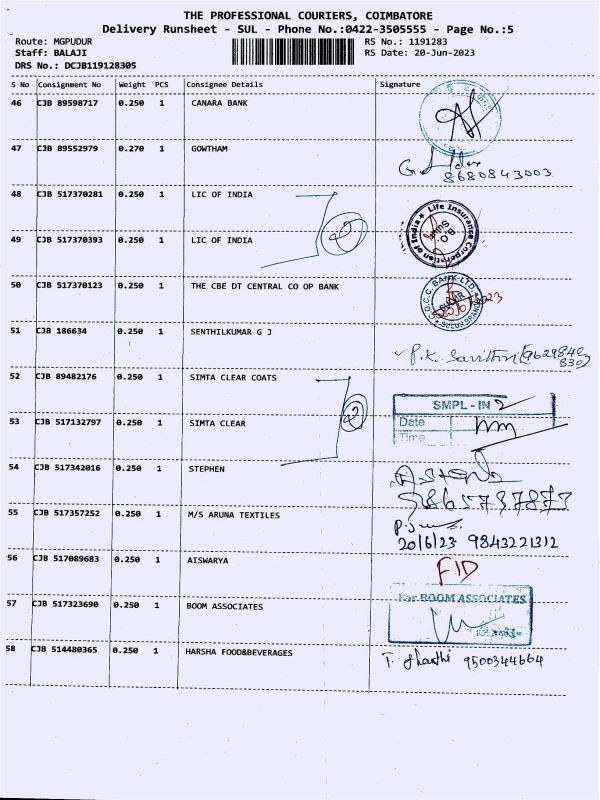 THE PROFESSIONAL COURIERS, COIMBATORE
Delivery Runsheet - SUL - Phone No.:0422-3505555 - Page No.:5
Route: MGPUDUR RS No.: 1191283
Staff: BALAJI RS Date: 20-Jun-2023
DRS No.: DCJB119128305
S No Consignment No Weight PCS Consignee Details Signature
46 CJB 89598717 0.250 1 CANARA BANK
47 CJB 89552979 0.270 1 GOWTHAM
8680843003
48 CJB 517370281 0.250 1 LIC OF INDIA
2
Life Insurance Corporation of India
B.O. Sulur
49 CJB 517370393 0.250 1 LIC OF INDIA
50 CJB 517370123 0.250 1 THE CBE DT CENTRAL CO OP BANK
D.C.C. BANK-LTD.
SULUR BRANCH
51 CJB 186634 0.250 1 SENTHILKUMAR G J
P.K.
52 CJB 89482176 0.250 1 SIMTA CLEAR COATS
2
SMPL - IN 2
Date
Time
53 CJB 517132797 0.250 1 SIMTA CLEAR
54 CJB 517342016 0.250 1 STEPHEN
9865787877
55 CJB 517357252 0.250 1 M/S ARUNA TEXTILES
20/6/23 9843221312
56 CJB 517089683 0.250 1 AISWARYA
FID
57 CJB 517323690 0.250 1 BOOM ASSOCIATES
For BOOM ASSOCIATES
58 CJB 514480365 0.250 1 HARSHA FOOD&BEVERAGES
9500344664